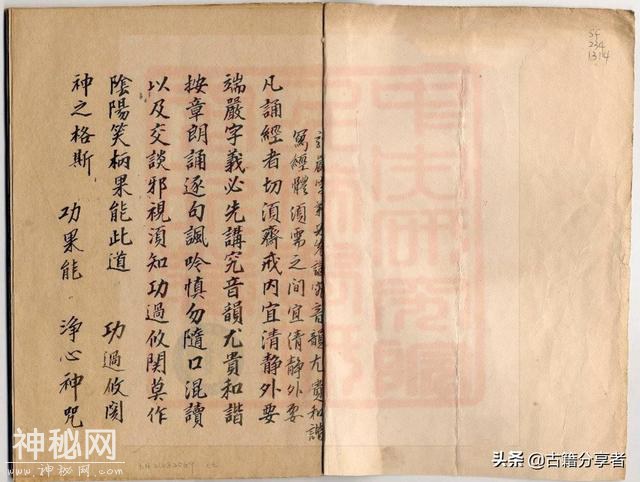 必先講究音韻尤貴和諧
寫經體須需之間宜清靜外要
凡誦經者切須齋戒內宜清靜外要
端嚴字義必先講究音韻尤貴和諧
按章朗誦逐句諷吟慎勿隨口混讀
以及交談邪視須知功過攸関莫作
隂陽笑柄果能此道 功過攸関
神之格斯 功果能 淨心神咒
234
1314
神秘网
www.shenmiw.com
头条 @古籍分享者